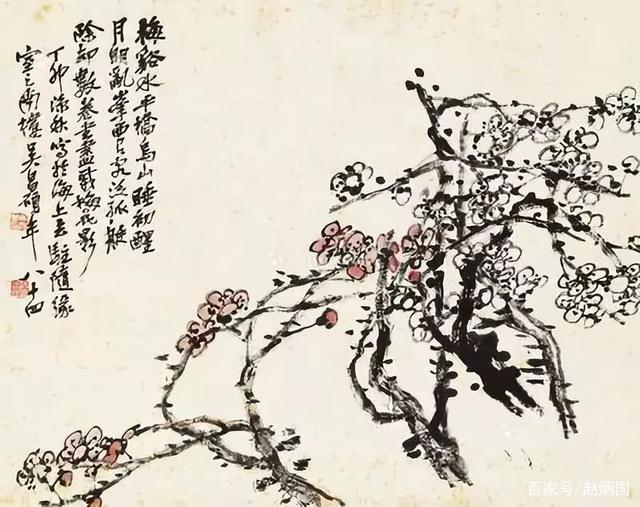 梅谿水平橋烏山睡初醒
月明亂峯西有客泛孤艇
除却數卷書盡載梅花影
丁卯深秋寫於海上去駐隨緣
室之南樓吳昌碩年八十四
百家号/赵炳国